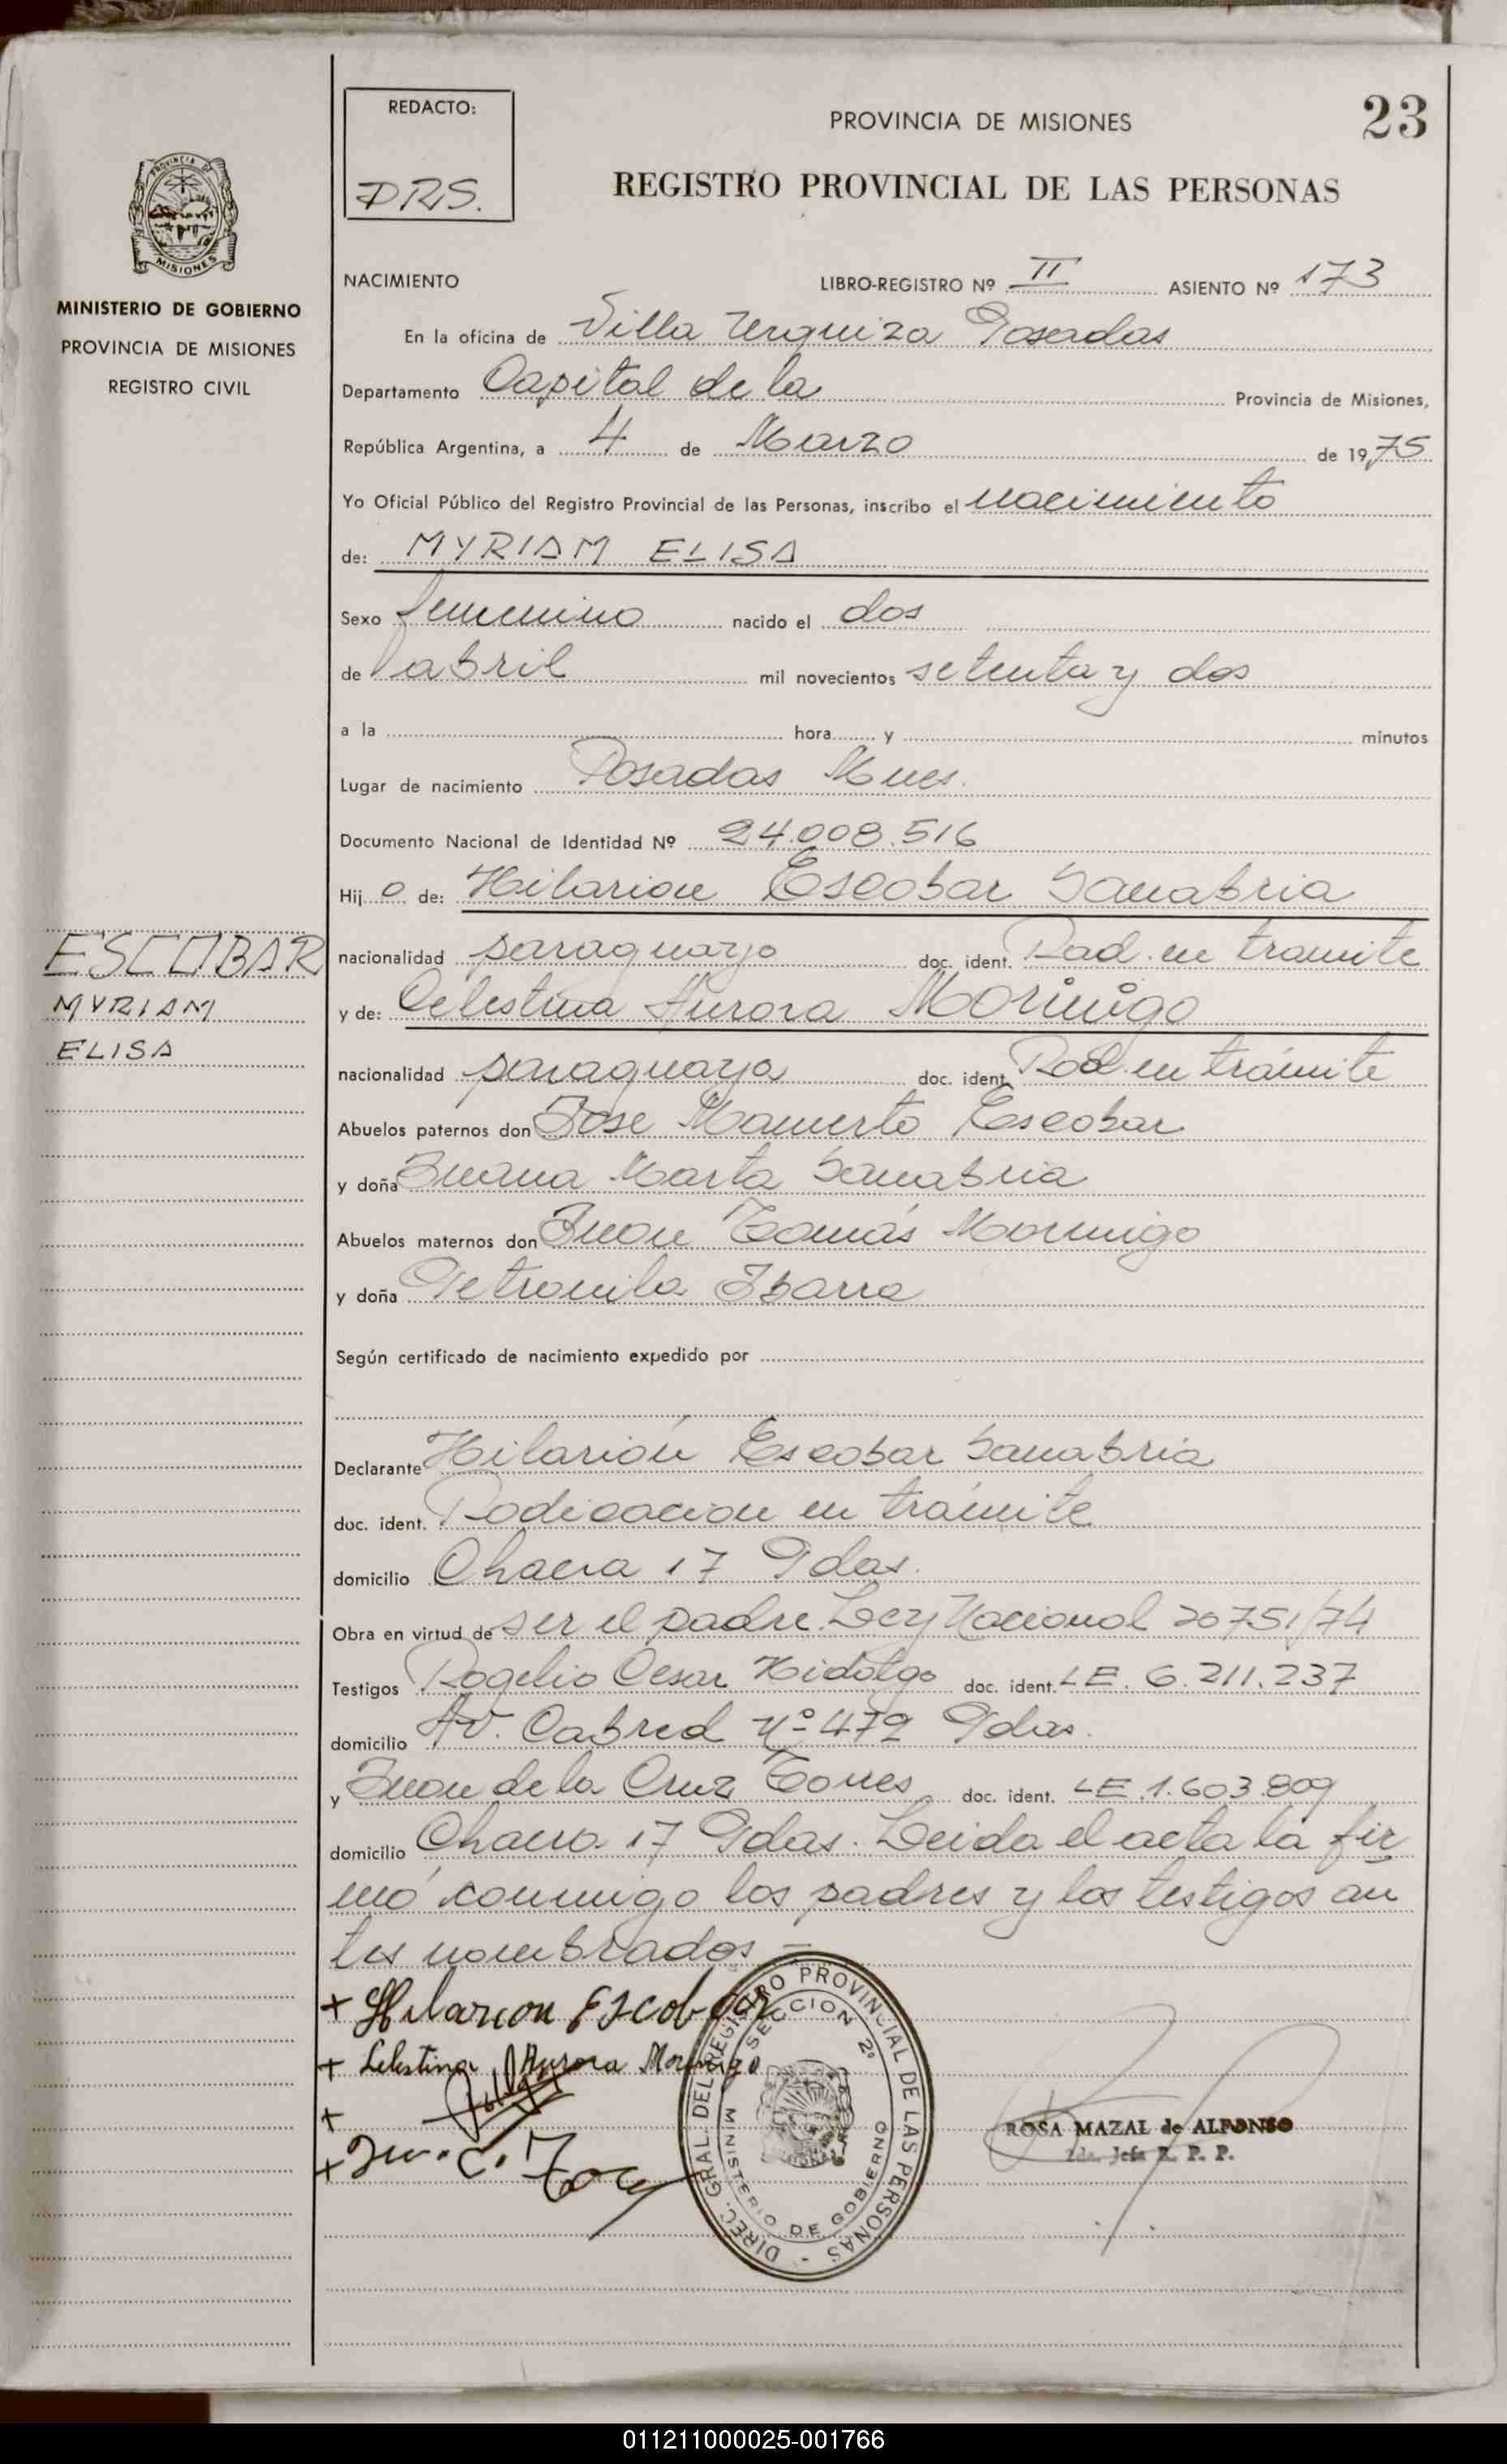 23
REDACTO:
DRS.
PROVINCIA DE MISIONES
REGISTRO PROVINCIAL DE LAS PERSONAS
PROVINCIA DE
MISIONES
MINISTERIO DE GOBIERNO
PROVINCIA DE MISIONES
REGISTRO CIVIL
NACIMIENTO LIBRO-REGISTRO Nº II ASIENTO Nº 173
En la oficina de Villa Urquiza Posadas
Departamento Capital de la Provincia de Misiones,
República Argentina, a 4 de Marzo de 1975
Yo Oficial Público del Registro Provincial de las Personas, inscribo el nacimiento
de: MYRIAM ELISA
Sexo femenino nacido el dos
de abril mil novecientos setenta y dos
a la hora y minutos
Lugar de nacimiento Posadas Mnes.
Documento Nacional de Identidad Nº 24.008.516
Hij o de: Hilarion Escobar Sanabria
ESCOBAR
MYRIAM
ELISA
nacionalidad paraguayo doc. ident. Rad. en tramite
y de: Celestina Aurora Morinigo
nacionalidad paraguaya doc. ident. Rad. en trámite
Abuelos paternos don Jose Mamerto Escobar
y doña Juana Marta Sanabria
Abuelos maternos don Juan Tomás Morinigo
y doña Petronila Ibarra
Según certificado de nacimiento expedido por
Declarante Hilarión Escobar Sanabria
doc. ident. Radicacion en trámite
domicilio Chacra 17 Pdas.
Obra en virtud de ser el padre. Ley Nacional 20751/74
Testigos Rogelio Cesar Hidalgo doc. ident. LE. 6.211.237
domicilio Av. Cabred nº 479 Pdas.
y Juan de la Cruz Torres doc. ident. LE.1.603.809
domicilio Chacra 17 Pdas. Leida el acta la fir
mó conmigo los padres y los testigos an
tes nombrados –
+ Hilarion Escobar
+ Celestina Aurora Morinigo
+
+ Ju. C. Torres
DIREC. GRAL. DEL REGISTRO PROVINCIAL DE LAS PERSONAS -
SECCION 2º
MINISTERIO DE GOBIERNO
ROSA MAZAL de ALFONSO
Jefa R. P. P.
011211000025-001766